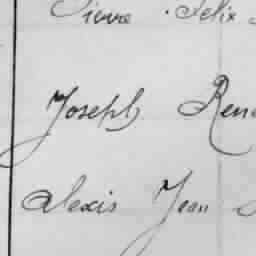 Pierre Felix
Joseph René
Alexis Jean